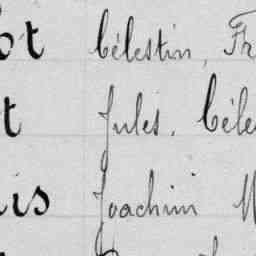 ot Célestin, Fr
t Jules, Céle
is Joachim M